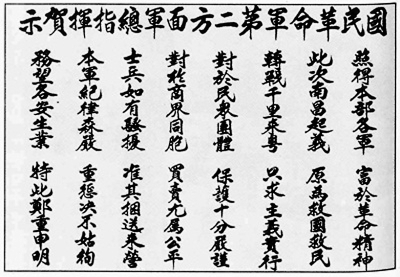 國民革命軍第二方面軍總指揮賀示
照得本部各軍 富於革命精神
此次南昌起義 原為救國救民
轉戰千里來粵 只求主義實行
對於民衆團體 保護十分嚴謹
對於商界同胞 買賣尤属公平
士兵如有騷擾 准其捆送來營
本軍紀律森嚴 重懲决不姑徇
務望各安生業 特此鄭重申明